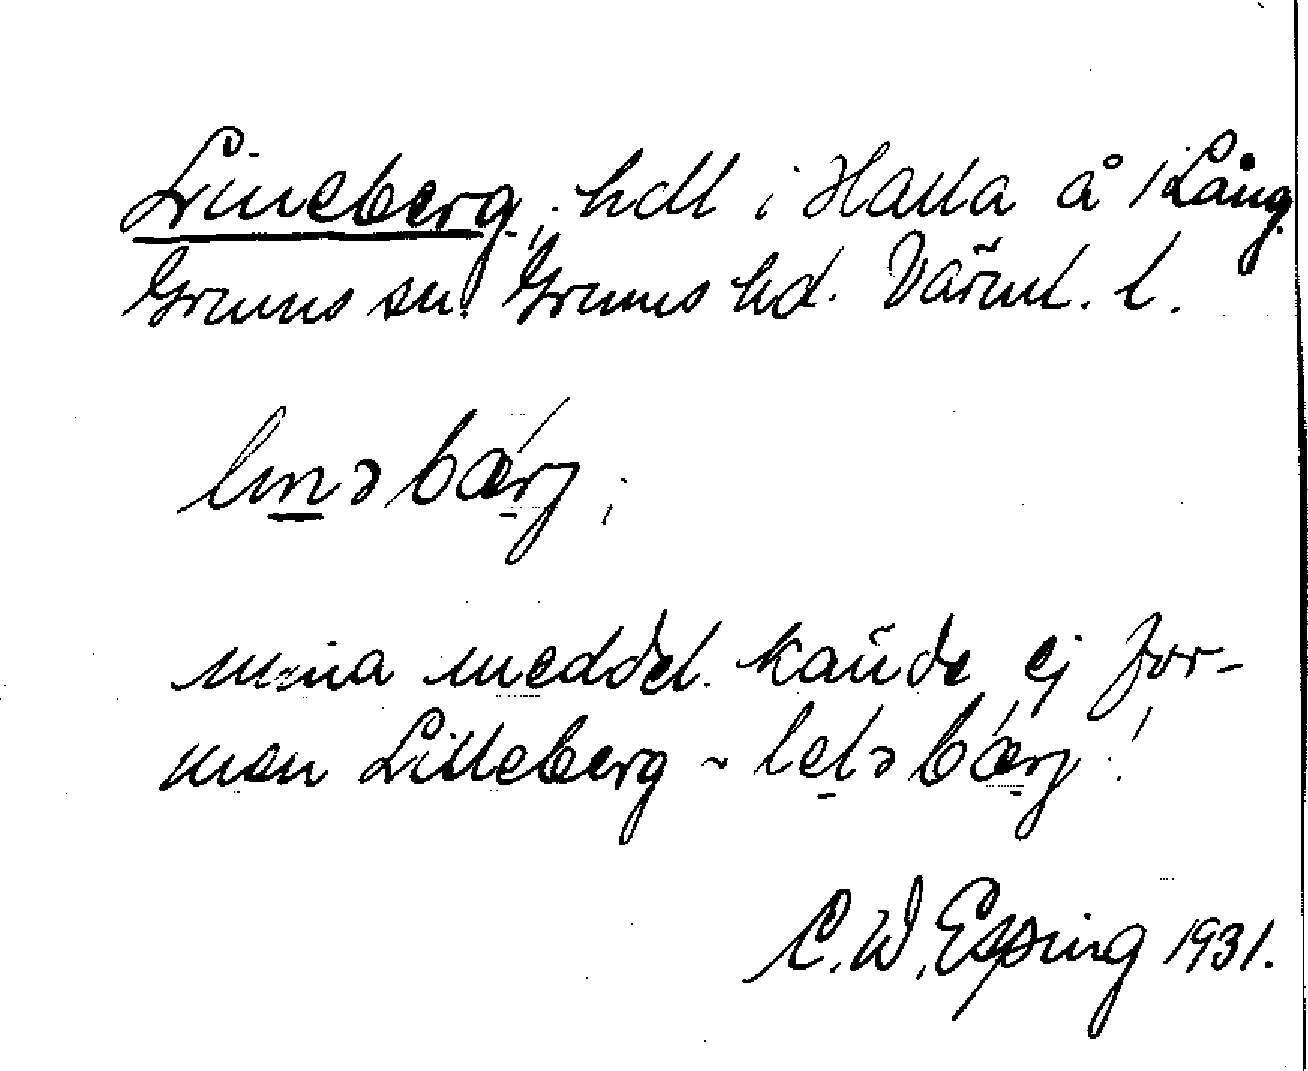 Linneberg, hdl i Halla å 1 Lång
Grums sn. Grums hd. Värml. l.
linəbærj;
mina meddel. kände ej for-
men Lilleberg ~ leləbærj!
C. W. Epping 1931.